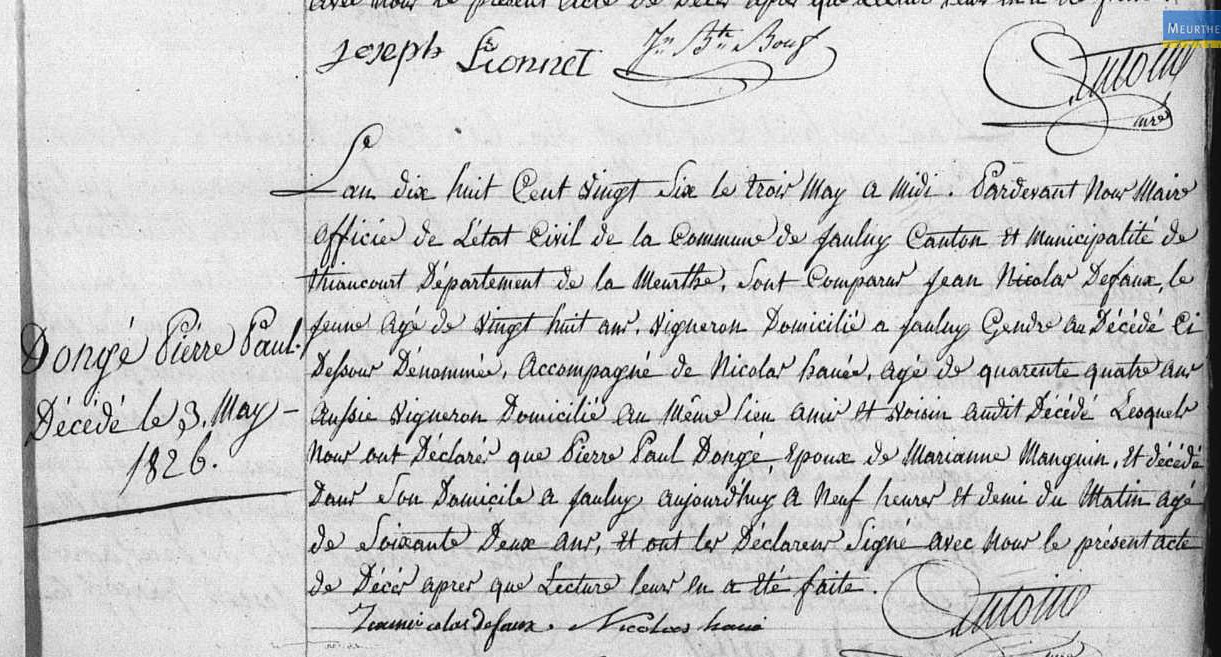 avec nous le présent acte de Décès après que lecture leurs en a
Joseph Lionnet Jn Bte Antoine
maire
MEURTHE
L'an dix huit Cent vingt Six le trois May a Midi. Pardevant Nous Maire
Officié de L'état Civil de la Commune de Jaulny Canton et Municipalité de
thiaucourt Département de la Meurthe, Sont Comparus Jean Nicolas Defaux, le
Jeune agé de vingt huit ans, vigneron Domicilié a Jaulny Gendre au Décédé Ci
Dessous Dénommée, Accompagné de Nicolas hané, agé de quarente quatre ans
aussie vigneron Domicilié au Même lieu amis et voisin audit Décédé Lesquels
Nous ont Déclarés que Pierre Paul Dongé, Epoux de Marianne Manguin, Et décédé
Dans Son Domicile a Jaulny aujourd'huy a Neuf heures et demi du Matin agé
de Soixante Deux ans, et ont les Déclareurs Signé avec Nous le présent acte
de Décès apres que Lecture leurs en a été faite.
Jeannicolas defaux. Nicolas hané Antoine
maire
Dongé Pierre Paul.
Décédé le 3. May
1826.